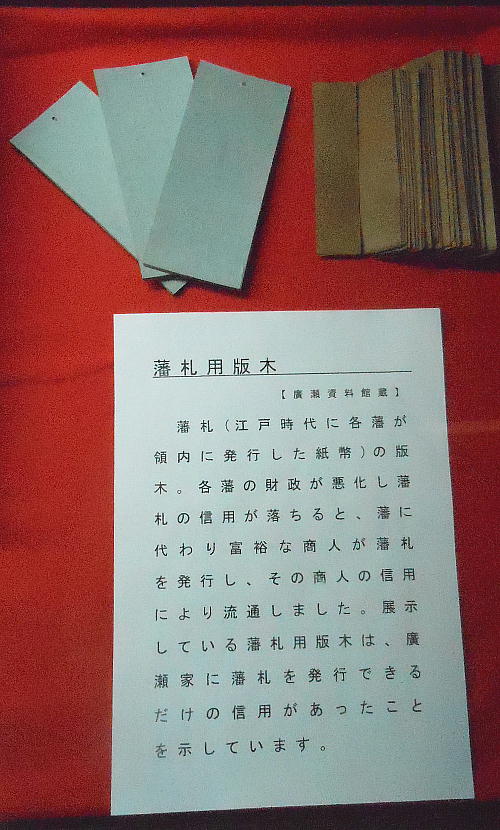 藩札用版木
【廣瀬資料館蔵】
藩札(江戸時代に各藩が
領内に発行した紙幣)の版
木。各藩の財政が悪化し藩
札の信用が落ちると、藩に
代わり富裕な商人が藩札
を発行し、その商人の信用
により流通しました。展示
している藩札用版木は、廣
瀬家に藩札を発行できる
だけの信用があったこと
を示しています。